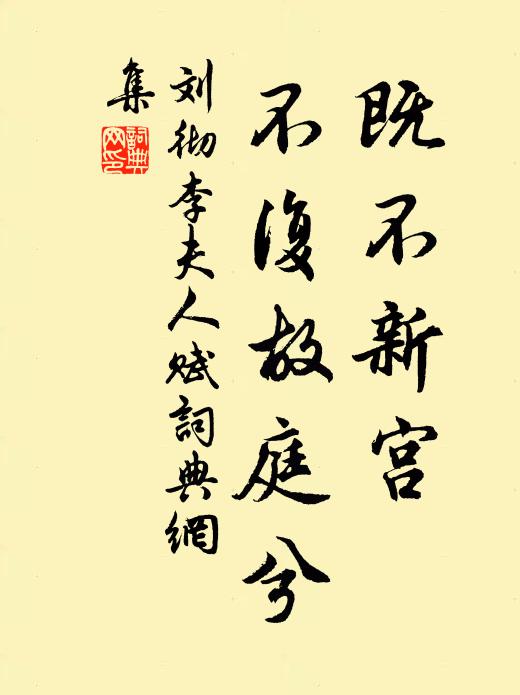 既不新宫
不復故庭兮
刘彻李夫人赋詞典網
集
詞典
网印